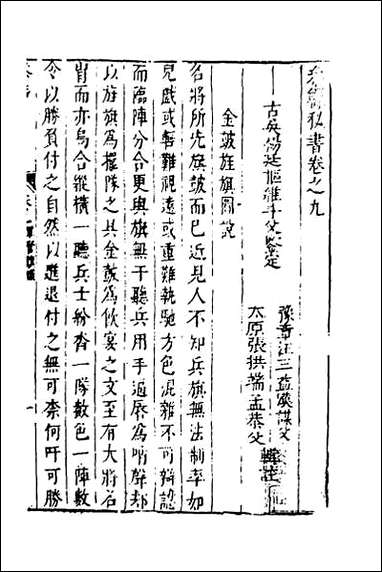 參籌秘書卷之九
古吳楊廷樞維斗父鑒定
豫章汪三益漢謀父
太原張拱端孟恭父
輯註
金鼓旌旗圖說
名將所先旗鼓而已近見人不知兵旗無法制率如
兒戲或輕難視遠或重難執馳方色混雜不可辯認
而臨陣分合更與旗無干聽兵用手逼唇為哨聲却
以旌旗為擺隊之具金鼓為飲宴之文至有大將名
胄而亦烏合縱橫一聽兵士紛沓一隊數色一陣數
令以勝負付之自然以進退付之無可柰何吁可勝